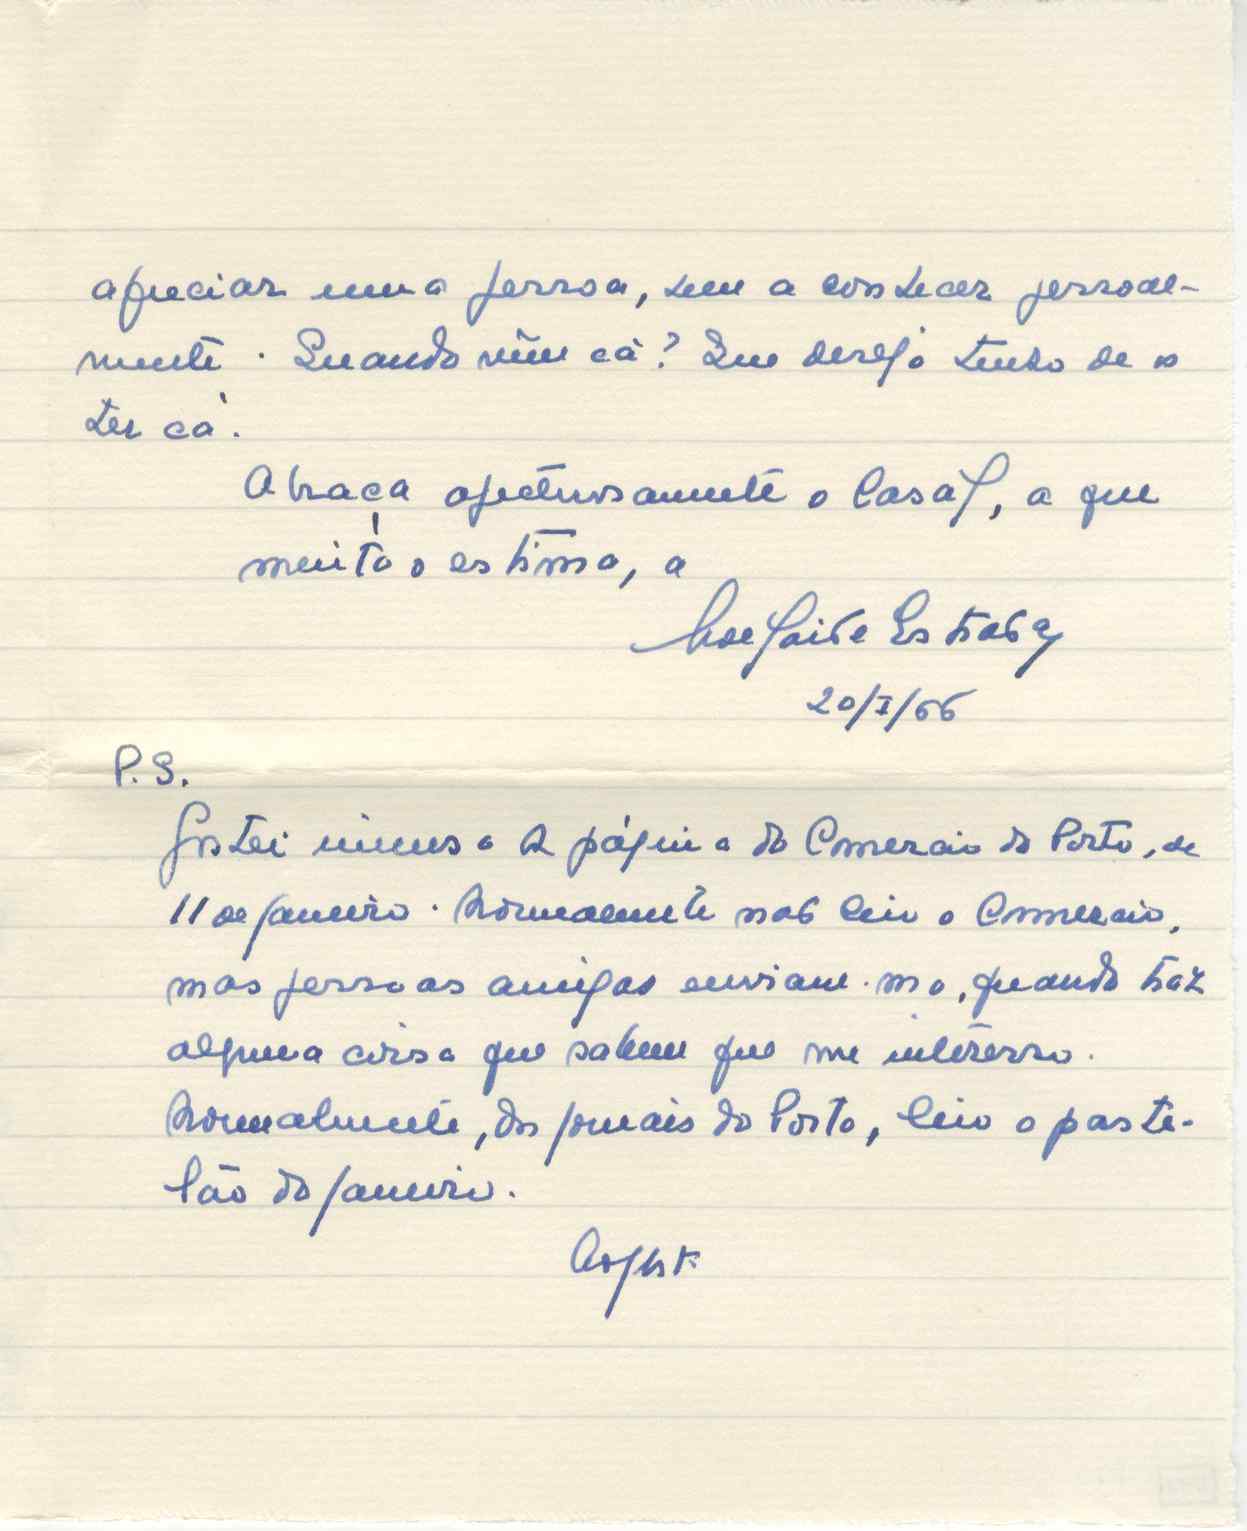 apreciar uma pessoa, sem a conhecer pessoal-
mente. Quando vêm cá? Que desejo tenho de os
ter cá!
Abraça afectuosamente o Casal, a que
muito o estima, a
Adelaide Estrada
20/I/66
P.S.
Gostei imenso da página do Comercio do Porto, de
11 de Janeiro. Normalmente não leio o Comercio,
mas pessoas amigas enviam-mo, quando traz
alguma coisa que sabem que me interessa.
Normalmente, dos jornais do Porto, leio o paste-
lão do Janeiro.